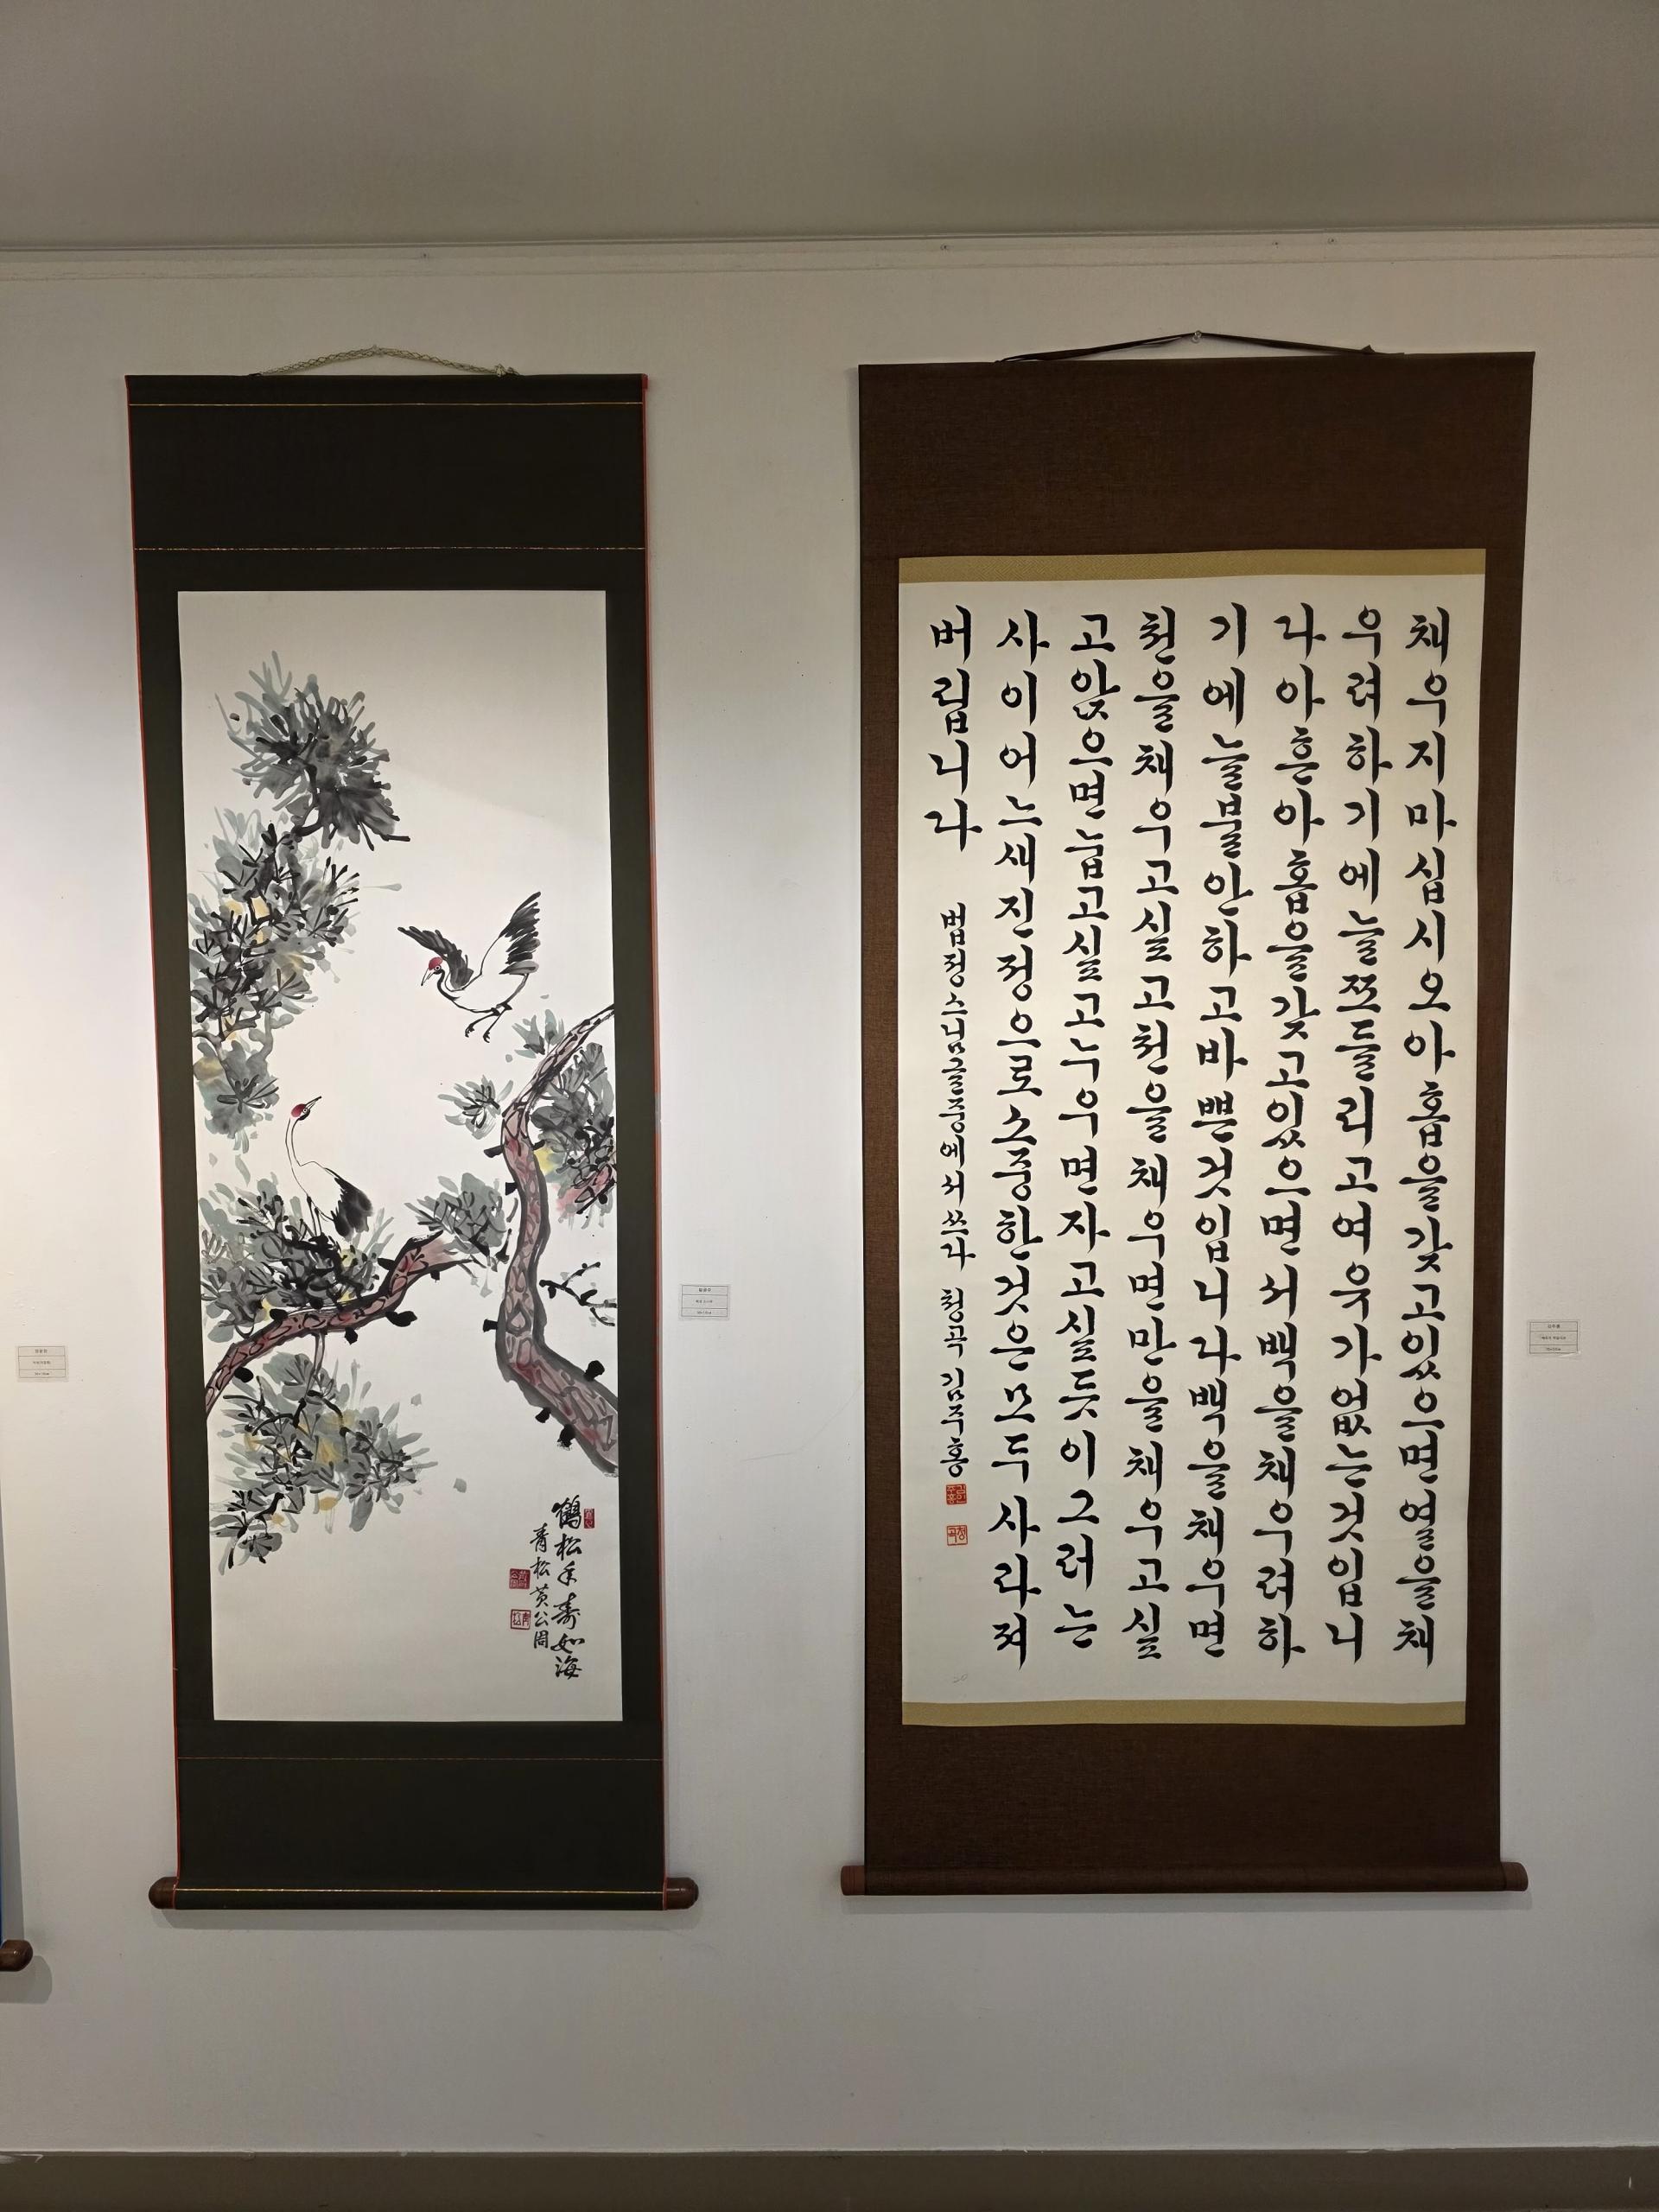 채우지마십시오아홉을갖고있으면열을채
우려하기에늘쪼들리고여유가없는것입니
다아흔아홉을갖고있으면서백을채우려하
기에늘불안하고바쁜것입니다백을채우면
천을채우고싶고천을채우면만을채우고싶
고앉으면눕고싶고누우면자고싶듯이그러는
사이어느새진정으로소중한것은모두사라져
버립니다
법정스님글중에서쓰다 청곡 김주홍
鶴松年壽如海
青松黃公周